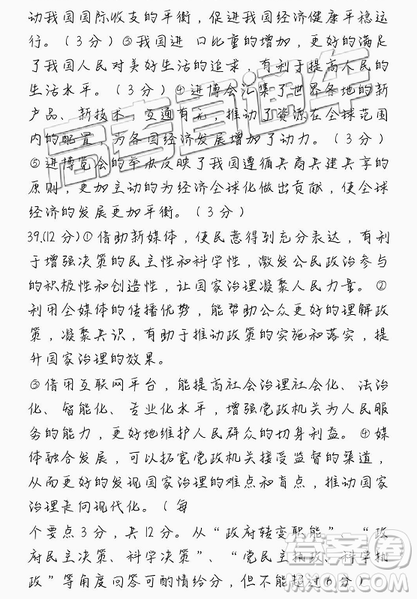 动我国国际收支的平衡，促进我国经济健康平稳运
行。（3分）③我国进 口比重的增加，更好的满足
了我国人民对美好生活的追求，有利于提高人民的
生活水平。（3分）④进博会汇集了世界各地的新
产品、新技术 交通有无，推动了资源在全球范围
内的配置，为各国经济发展增加了动力。（3分）
⑤进博览会的举办反映了我国遵循共商共建共享的
原则，更加主动的为经济全球化做出贡献，使全球
经济的发展更加平衡。（3分）
39.(12分)①借助新媒体，使民意得到充分表达，有利
于增强决策的民主性和科学性，激发公民政治参与
的积极性和创造性，让国家治理凝聚人民力量。②
利用全媒体的传播优势，能帮助公众更好的理解政
策，凝聚共识，有助于推动政策的实施和落实，提
升国家治理的效果。
③借用互联网平台，能提高社会治理社会化、法治
化、智能化、专业化水平，增强党政机关为人民服
务的能力，更好地维护人民群众的切身利益。④媒
体融合发展，可以拓宽党政机关接受监督的渠道，
从而更好的发现国家治理的难点和盲点，推动国家
治理走向现代化。（每
个要点3分，共12分。从“政府转变职能”、“政
府民主决策、科学决策”、“党民主执政、科学执
政”等角度回答可酌情给分，但不能超过6分）